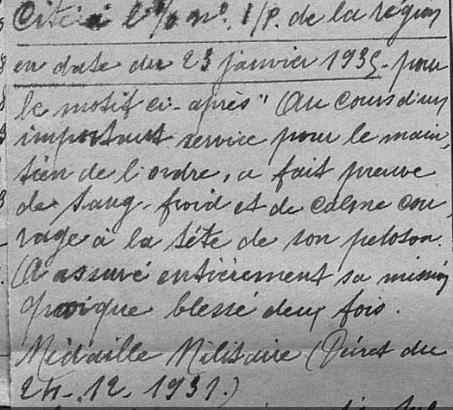 Citéé à l'% n°. 1/P. de la région
en date du 23 janvier 1935 - pour
le motif ci-après " Au cours d'un
important service pour le main
tien de l'ordre, a fait preuve
de sang-froid et de calme cou
rage à la tête de son peloton.
A assuré entièrement sa mission
quoique blessé deux fois.
Médaille Militaire (Décret du
24-12-1931.)